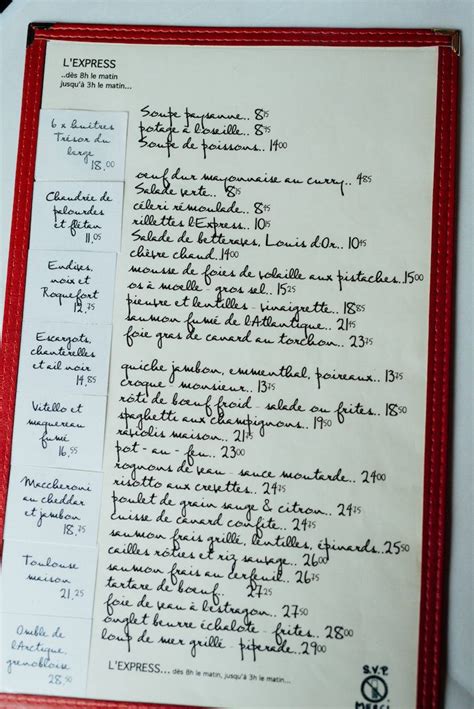 L'EXPRESS
..dès 8h le matin
jusqu'à 3h le matin...
6 x huîtres
Trésor du
large
18.00
Chaudrée de
palourdes
et flétan
11.05
Endives,
noix et
Roquefort
12.75
Escargots,
chanterelles
et ail noir
14.85
Vitello et
maquereau
fumé
16.55
Maccheroni
au cheddar
et jambon
18.75
Toulouse
maison
21.25
Omble de
l'Arctique,
grenobloise
28.50
Soupe paysanne.. 8
potage à l'oseille.. 8
Soupe de poissons.. 14 00
oeuf dur mayonnaise au curry.. 4 85
Salade verte.. 8
céleri rémoulade.. 8
rillettes l'Express.. 10
Salade de betteraves, Louis d'Or.. 10
chèvre chaud.. 14 00
mousse de foies de volaille aux pistaches.. 15 00
os à moelle - gros sel.. 15 25
pieuvre et lentilles - vinaigrette.. 18 85
saumon fumé de l'Atlantique.. 21
foie gras de canard au torchon.. 23 75
quiche jambon, emmenthal, poireaux.. 13 75
croque - monsieur.. 13 75
rôti de boeuf froid - salade ou frites.. 18 50
spaghetti aux champignons.. 19 50
raviolis maison.. 21
pot - au - feu.. 23 00
rognons de veau - sauce moutarde.. 24 00
risotto aux crevettes.. 24
poulet de grain sauge & citron.. 24
cuisse de canard confite.. 24
saumon frais grillé, lentilles, épinards.. 25 50
cailles rôties et riz sauvage.. 26 00
saumon frais au cerfeuil.. 26
tartare de boeuf.. 27
foie de veau à l'estragon.. 27 50
onglet beurre échalote - frites.. 28 00
loup de mer grillé - piperade.. 29 00
L'EXPRESS... dès 8h le matin, jusqu'à 3h le matin...
S.V.P.
MERCI